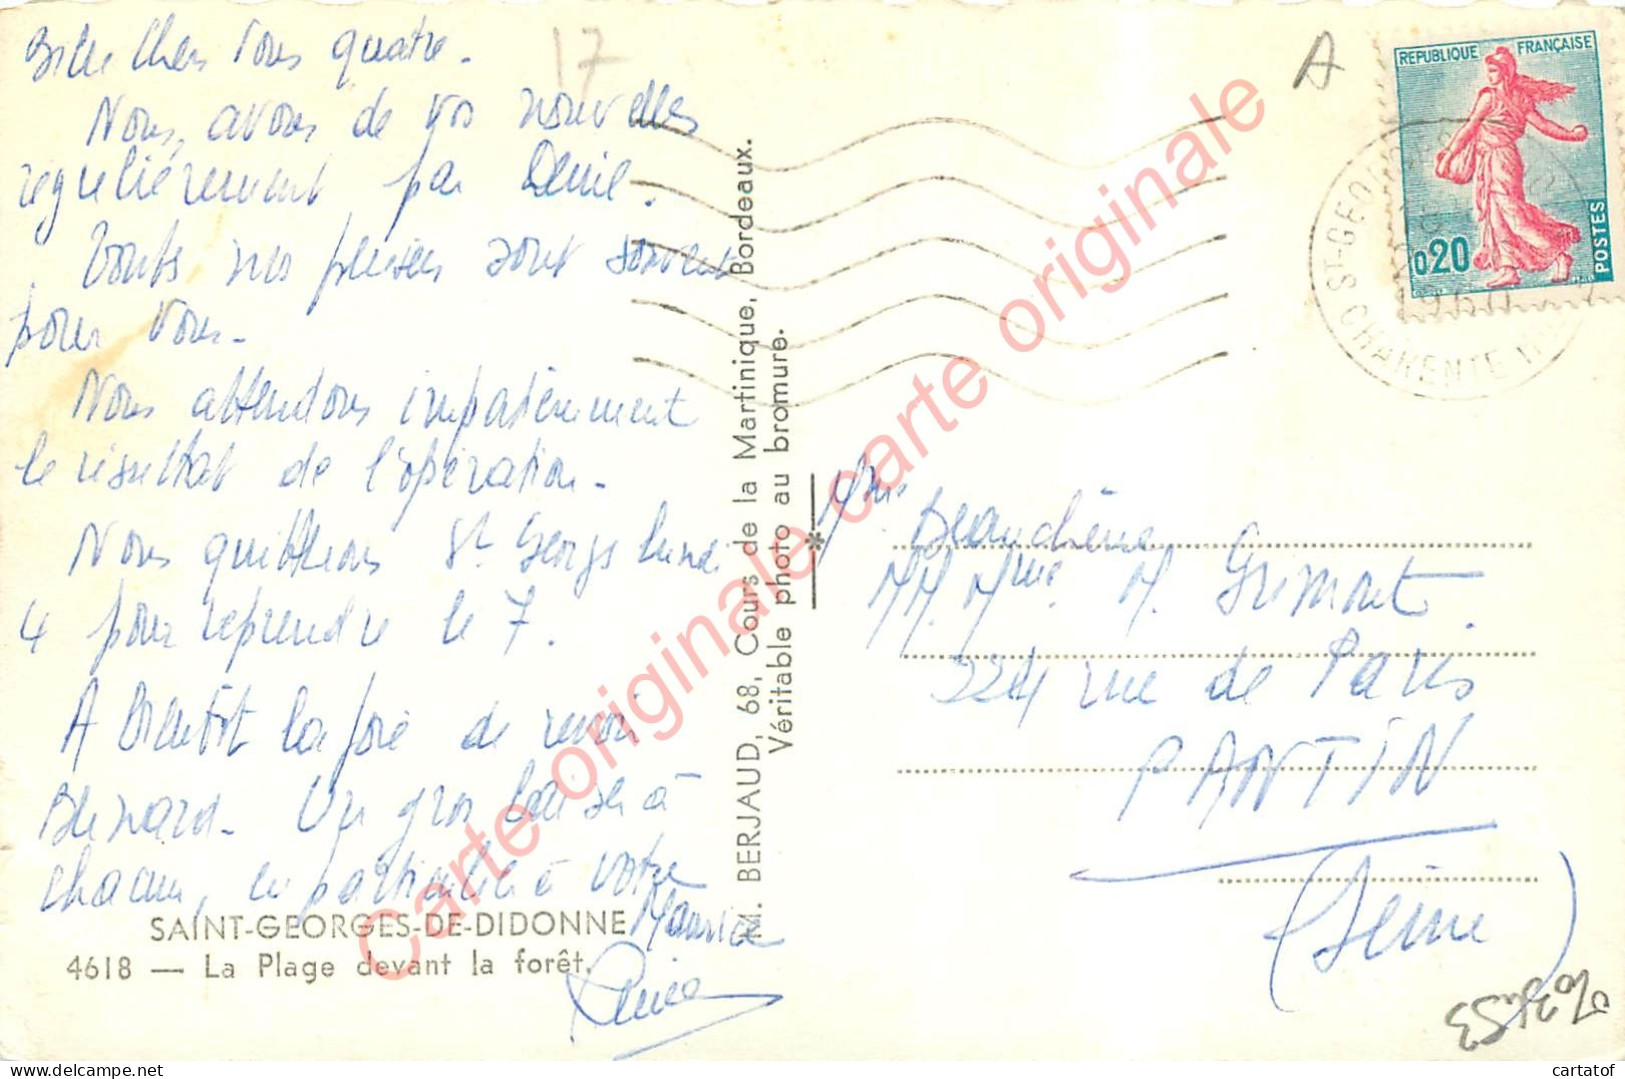 Bien Chers Vous quatre.
Nous, avons de vos nouvelles
regulièrement par Denise.
Toutes nos pensées sont souvent
pour Vous.
Nous attendons impatiemment
le résultat de l'opération.
Nous quittons St Georges lundi
4 pour reprendre le 7.
A Bientôt la joie de revoir
Bernard. Un gros baiser à
chacun, en particulier à votre
Maurice
SAINT-GEORGES-DE-DIDONNE
4618 — La Plage devant la forêt.
M. BERJAUD, 68, Cours de la Martinique, Bordeaux.
Véritable photo au bromure.
17
A
REPUBLIQUE FRANÇAISE
0,20
POSTES
ST-GEORGES
1960
CHARENTE
Beauchêne
MM. Mme M. Grimont.
224 rue de Paris
PANTIN
(Seine)
Carte originale carte originale carte originale
cartatof